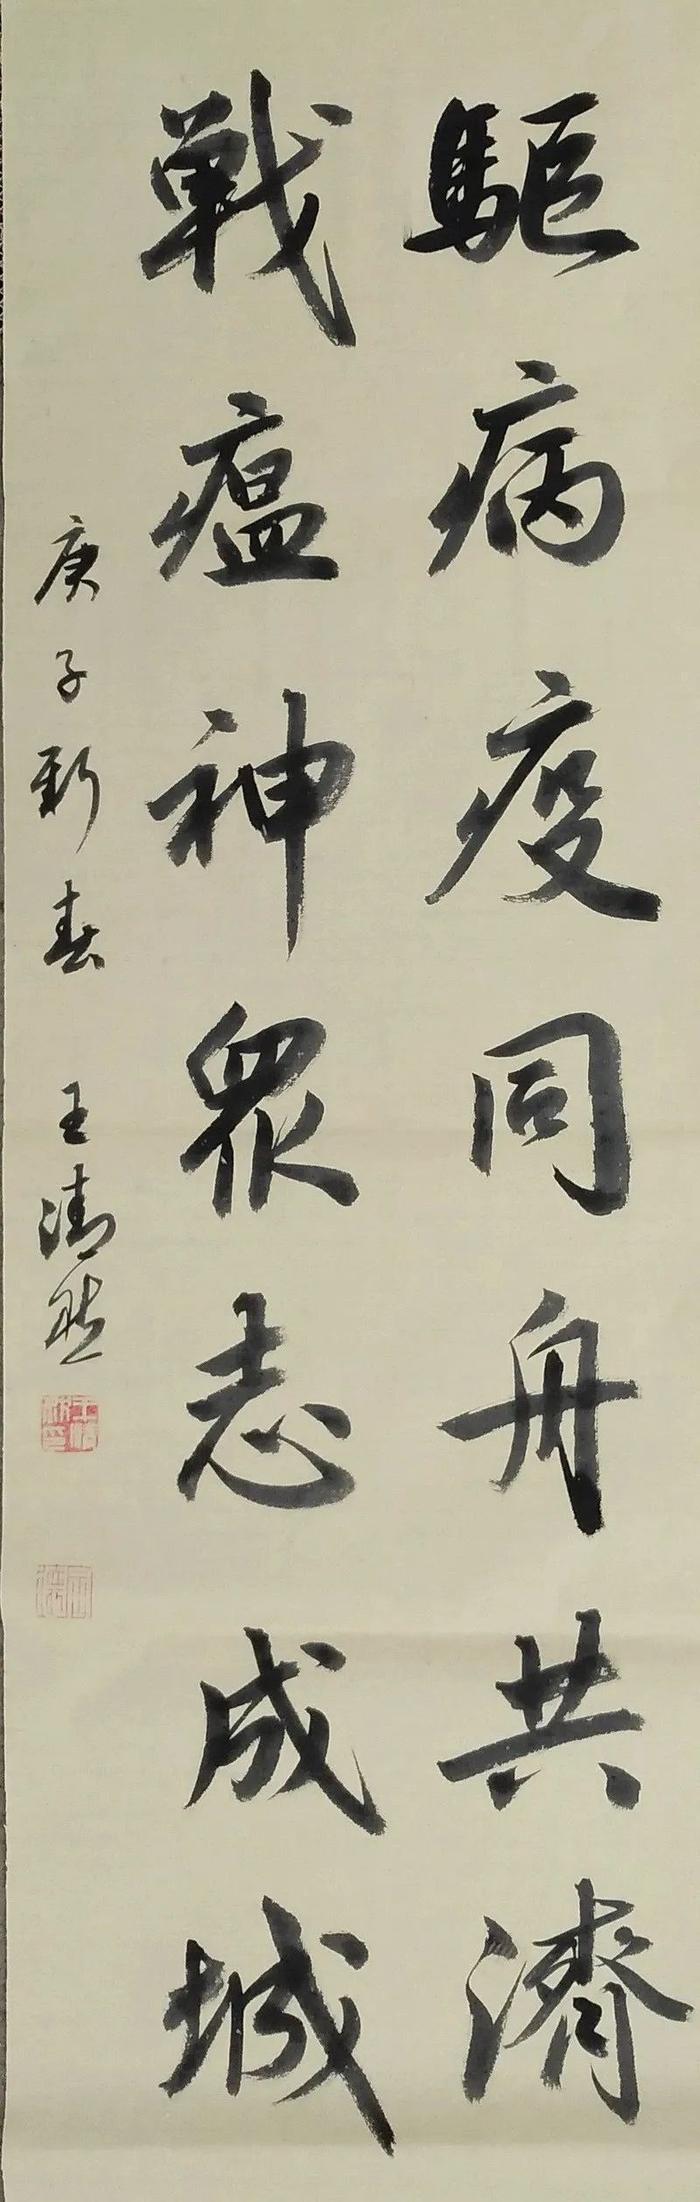 驅病疫同舟共濟
戰瘟神眾志成城
庚子新春 王清